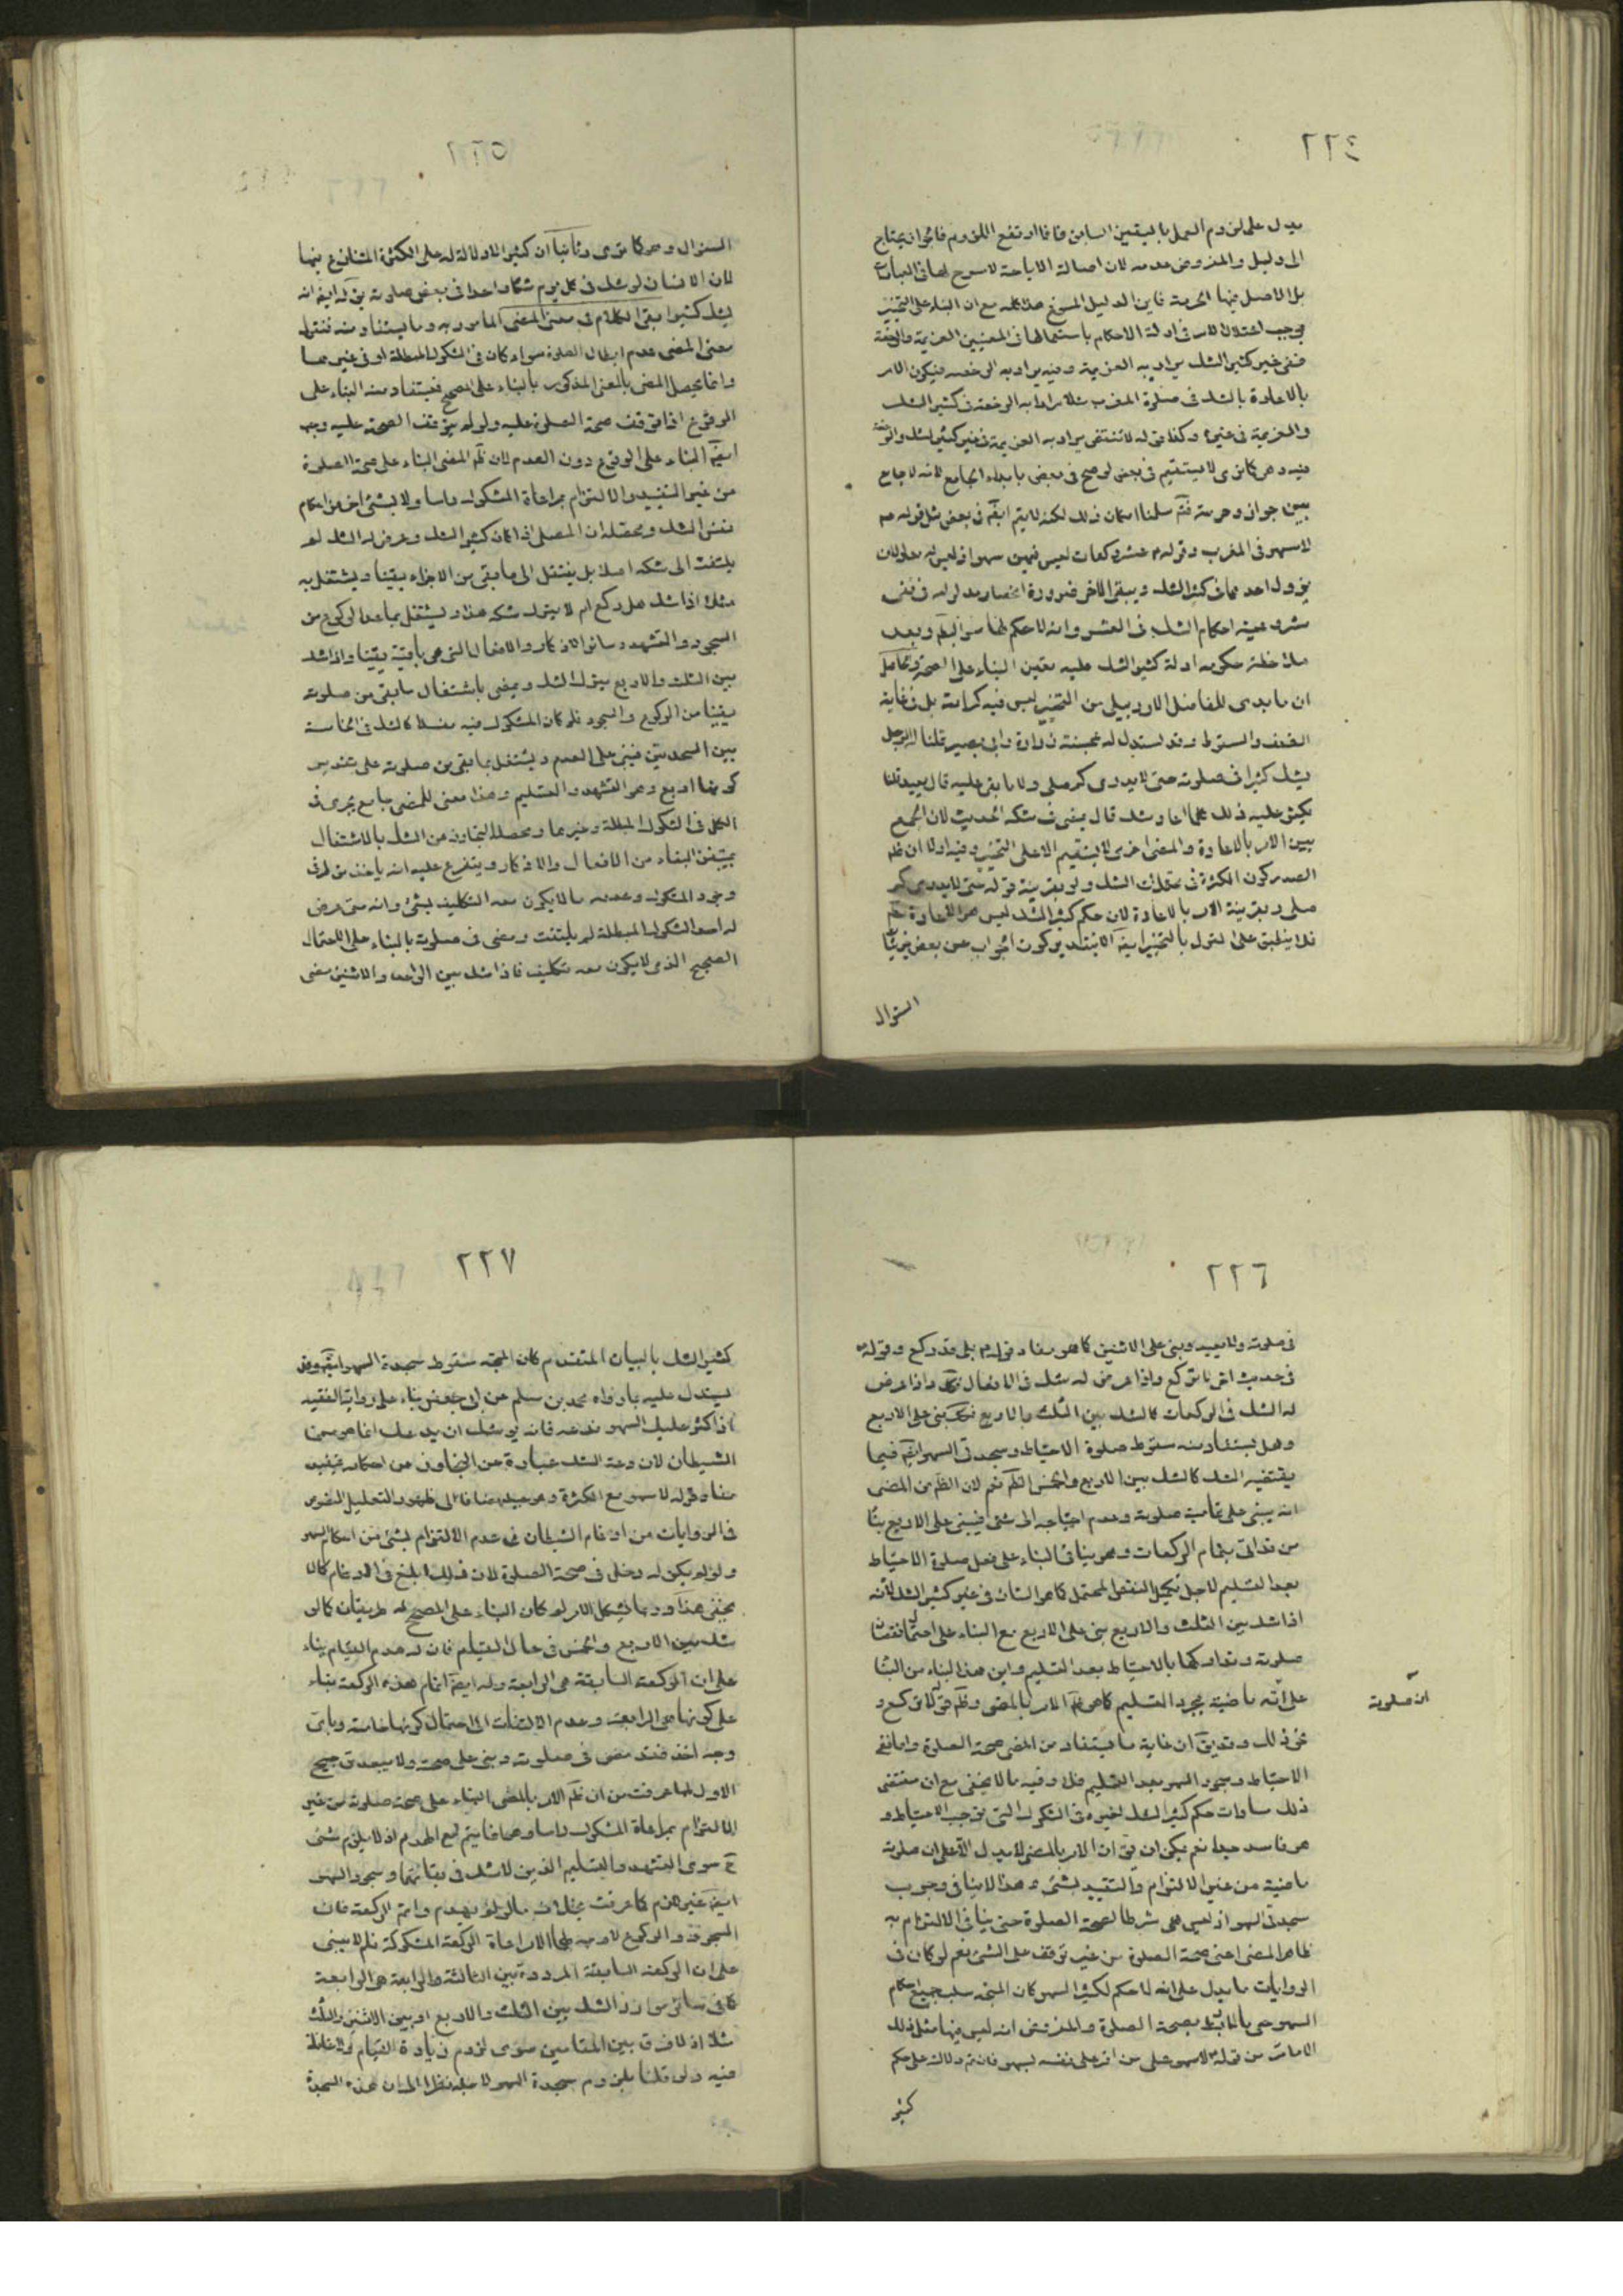 ٢٢٤
يدل على لزوم العمل باليقين السابق فاذا ارتفع اللزوم فالجواز يحتاج
الى دليل والمفروض عدمه لان اصالة الاباحة لا سرح لها فى العبادات
بل الاصل فيها الحرمة فاين الدليل المسوغ هذا كله مع ان البناء على التخيير
يوجب اختلال الامر فى ادلة الاحكام باستعمالها فى المعنيين العزيمة والرخصة
ففى غير كثير الشك يراد به العزيمة وفيه يراد به الرخصة فيكون الامر
بالاعادة بالشك فى صلوة المغرب مثلا يراد به الرخصة فى كثير الشك
والعزيمة فى غيره وكذا قوله لا تنتقض يراد به العزيمة فى غير كثير الشك والرخصة
فيه وهو كما ترى لا يستقيم فى بعض لو صح فى بعض بابداء الجامع لانه لا جامع
بين جواز وحرمة ثم سلمنا امكان ذلك لكنه لا يتم ايضا فى بعض مثل قوله
لا سهو فى المغرب وقوله عشر ركعات ليس فيهن سهو اذ ليس له مدلولان
يزول احدهما فى كثير الشك ويبقى الاخر ضرورة انحصار مدلوله فى نفى
مشروعية احكام الشك فى العشر وانه لا حكم لها سوى البطلان وبعد
ملاحظة حكومة ادلة كثير الشك عليه يتعين البناء على الصحة والحاصل
ان ما يدعى للفاضل الاردبيلى من التخيير ليس فيه كرامة بل فى غاية
الضعف والسقوط وقد يستدل له بحسنة زرارة وابى بصير قلنا له الرجل
يشك كثيرا فى صلوته حتى لا يدرى كم صلى ولا ما بقى عليه قال يعيد قلنا
يكثر عليه ذلك كلما اعاد شك قال يمضى فى شكه الحديث لان الجمع
بين الامر بالاعادة والمضى اخرى لا يستقيم الا على التخيير وفيه اولا ان
الصدر كون الكثرة فى محتملات الشك ولو بقرينة قوله حتى لا يدرى كم
صلى وبقرينة الامر بالاعادة لان حكم كثير الشك ليس هو الاعادة
فلا ينطبق على القول بالتخيير ايضا الا بتقدير كون الجواب عن بعض جزئيات
السؤال
٢٢٥
السؤال وهو كما ترى وثانيا ان كثيرا لا دلالة له على الكثرة المتنازع فيها
لان الانسان لو شك فى كل يوم شكا واحدا فى بعض صلوته يق له ايضا انه
يشك كثيرا بقى الكلام فى معنى المضى المامور به وما يستفاد منه فنقول
معنى المضى عدم ابطال الصلوة سواء كان فى الشكوك المبطلة او فى غيرها
وانما يحصل المضى بالمعنى المذكور بالبناء على المصحح فيستفاد منه البناء على
الوقوع اذا توقف صحة الصلوة عليه ولو لم يتوقف الصحة عليه وجب
ايضا البناء على الوقوع دون العدم لان ظم المضى البناء على صحة الصلوة
من غير التقييد والالتزام بمراعاة المشكوك راسا ولا بشئ اخر من احكام
نفس الشك ومحصله ان المصلى اذا كان كثير الشك وعرض له الشك لم
يلتفت الى شكه اصلا بل ينتقل الى ما بقى من الاجزاء يقينا ويشتغل به
مثلا اذا شك هل ركع ام لا يترك شكه هذا ويشتغل بما عدا الركوع من
السجود والتشهد وسائر الاذكار والافعال التى هى باقية يقينا واذا شك
بين الثلث والاربع يترك الشك ويمضى باشتغال ما بقى من صلوته
يقينا من الركوع والسجود فلو كان المشكوك فيه مفسدا كالشك فى الخامسة
بين السجدتين فيبنى على العدم ويشتغل بما بقى من صلوته على تقدير
كونها اربع وهو التشهد والتسليم وهذا معنى للمضى جامع يجرى فى
الكل فى الشكوك المبطلة وغيرها ومحصله التجاوز من الشك بالاشتغال
بمتيقن البقاء من الافعال والاذكار ويتفرع عليه انه ياخذ من طرفى
وجود المشكوك وعدمه ما لا يكون معه التكليف بشئ وانه متى عرض
له احد الشكوك المبطلة لم يلتفت ومضى فى صلوته بالبناء على الاحتمال
الصحيح الذى لا يكون معه تكليف فاذا شك بين الواحد والاثنين مضى
٢٢٦
فى صلوته ولا يعيد ويبنى على الاثنين كما هو مفاد قوله بلى قد ركع وقوله
فى حديث اخر ركع واذا عرض له شك فى الافعال واذا عرض
له الشك فى الركعات كالشك بين الثلث والاربع بنى على الاربع
وهل يستفاد منه سقوط صلوة الاحتياط وسجدتى السهو ايضا فيما
يقتضيه الشك كالشك بين الاربع والخمس الظم نعم لان الظم من المضى
انه يبنى على تمامية صلوته وعدم احتياجه الى شئ فيبنى على الاربع بناء
من تمام الركعات وهو ينافى البناء على فعل صلوة الاحتياط
بعد التسليم لاجل تكميل النقص المحتمل كما هو الشان فى غير كثير الشك لانه
اذا شك بين الثلث والاربع بنى على الاربع مع البناء على احتمال نقصان
صلوته وتداركها بالاحتياط بعد التسليم واين هذا البناء من البناء
على انه ماضية بمجرد التسليم كما هو ظم الامر بالمضى وظم قوله ركع و
نحو ذلك وقد يق ان غاية ما يستفاد من المضى صحة الصلوة واما نفى
الاحتياط وسجود السهو بعد التسليم فلا وفيه ما لا يخفى مع ان مقتضى
ذلك مساوات حكم كثير الشك لغيره فى الشكوك التى توجب الاحتياط و
هو فاسد جدا نعم يمكن ان يق ان الامر بالمضى لا يدل الا على ان صلوته
ماضية من غير الالتزام والتقييد بشئ وهذا لا ينافى وجوب
سجدتى السهو اذ ليس هى شرطا لصحة الصلوة حتى ينافى الالتزام به
ظاهر المضى اعنى صحة الصلوة من غير توقف على الشئ نعم لو كان فى
الروايات ما يدل على انه لا حكم لكثير السهو كان المتجه سلب جميع احكام
السهو حتى ما لا يرتبط بصحة الصلوة والمفروض انه ليس فيها مثل ذلك
الا ما من قوله لا سهو على من اقر على نفسه بسهو فان تم دلالته على حكم
كثير
ان صلوته
٢٢٧
كثير الشك بالبيان المتقدم كان المتجه سقوط سجدة السهو ايضا وقد
يستدل عليه بما رواه محمد بن مسلم عن ابى جعفر بناء على رواية الفقيه
اذا كثر عليك السهو فدعه فانه يوشك ان يدعك انما هو من
الشيطان لان دعة الشك عبارة عن التجاوز عن احكامه فيفيد
مفاد قوله لا سهو مع الكثرة وهو جيد مضافا الى ظهور التعليل المنصوص
فى الروايات من ارغام الشيطان فى عدم الالتزام بشئ من احكام السهو
ولو لم يكن له دخل فى صحة الصلوة لان ذلك ابلغ فى الارغام كما لا
يخفى هذا وربما يشكل الامر لو كان البناء على المصحح له طريقان كما لو
شك بين الاربع والخمس فى حال القيام فان له هدم القيام بناء
على ان الركعة السابقة هى الرابعة وله ايضا اتمام هذه الركعة بناء
على كونها هى الرابعة وعدم الالتفات الى احتمال كونها خامسة وباى
وجه اخذ فقد مضى فى صلوته وبنى على صحته ولا يبعد ترجيح
الاول لما عرفت من ان ظم الامر بالمضى البناء على صحة صلوته من غير
التزام بمراعاة المشكوك راسا وهذا انما يتم مع الهدم اذ لا يلزم شئ
ح سوى التشهد والتسليم الذين لا شك فى بقائهما وسجود السهو
ايضا غير لازم كما عرفت بخلاف ما لو لم يهدم واتم الركعة فان
السجود والركوع لا وجه لهما الا مراعاة الركعة المشكوكة فلم لا يبنى
على ان الركعة السابقة المرددة بين الثالثة والرابعة هى الرابعة
كما فى سائر موارد الشك بين الثلث والاربع او بين الاثنين والثلث
مثلا اذ لا فرق بين المقامين سوى لزوم زيادة القيام ولا غائلة
فيه ولو قلنا بلزوم سجدة السهو لاجله نظرا الى ان هذه السجدة